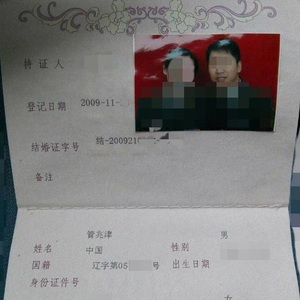 持证人
登记日期 2009-11-
结婚证字号 结-200921
备注
管兆津 男
姓名 中国 性别
国籍 辽字第05 号 出生日期
身份证件号
女